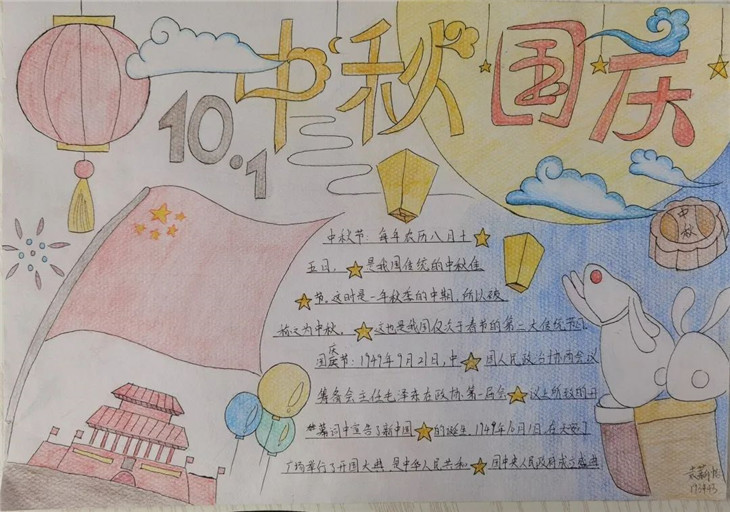 中秋 国庆
10.1
中秋
中秋节：每年农历八月十
五日，是我国传统的中秋佳
节。这时是一年秋季的中期，所以被
称为中秋，这也是我国仅次于春节的第二大传统节日
国庆节：1949年9月21日，中国人民政治协商会议
筹备会主任毛泽东在政协第一届会议上所致的开
幕词中宣告了新中国的诞生。1949年10月1日，在天安门
广场举行了开国大典，是中华人民共和国中央人民政府成立盛典